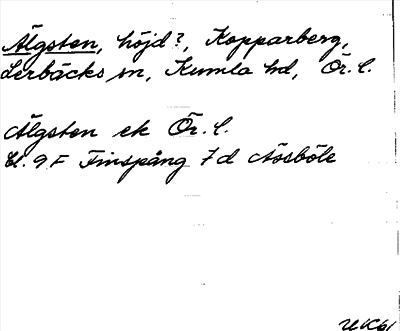 Älgsten, höjd?, Kopparberg,
Lerbäcks sn, Kumla hd, Ör. l.
Älgsten ek Ör. l.
Bl. 9F Finspång 7d Åsböle